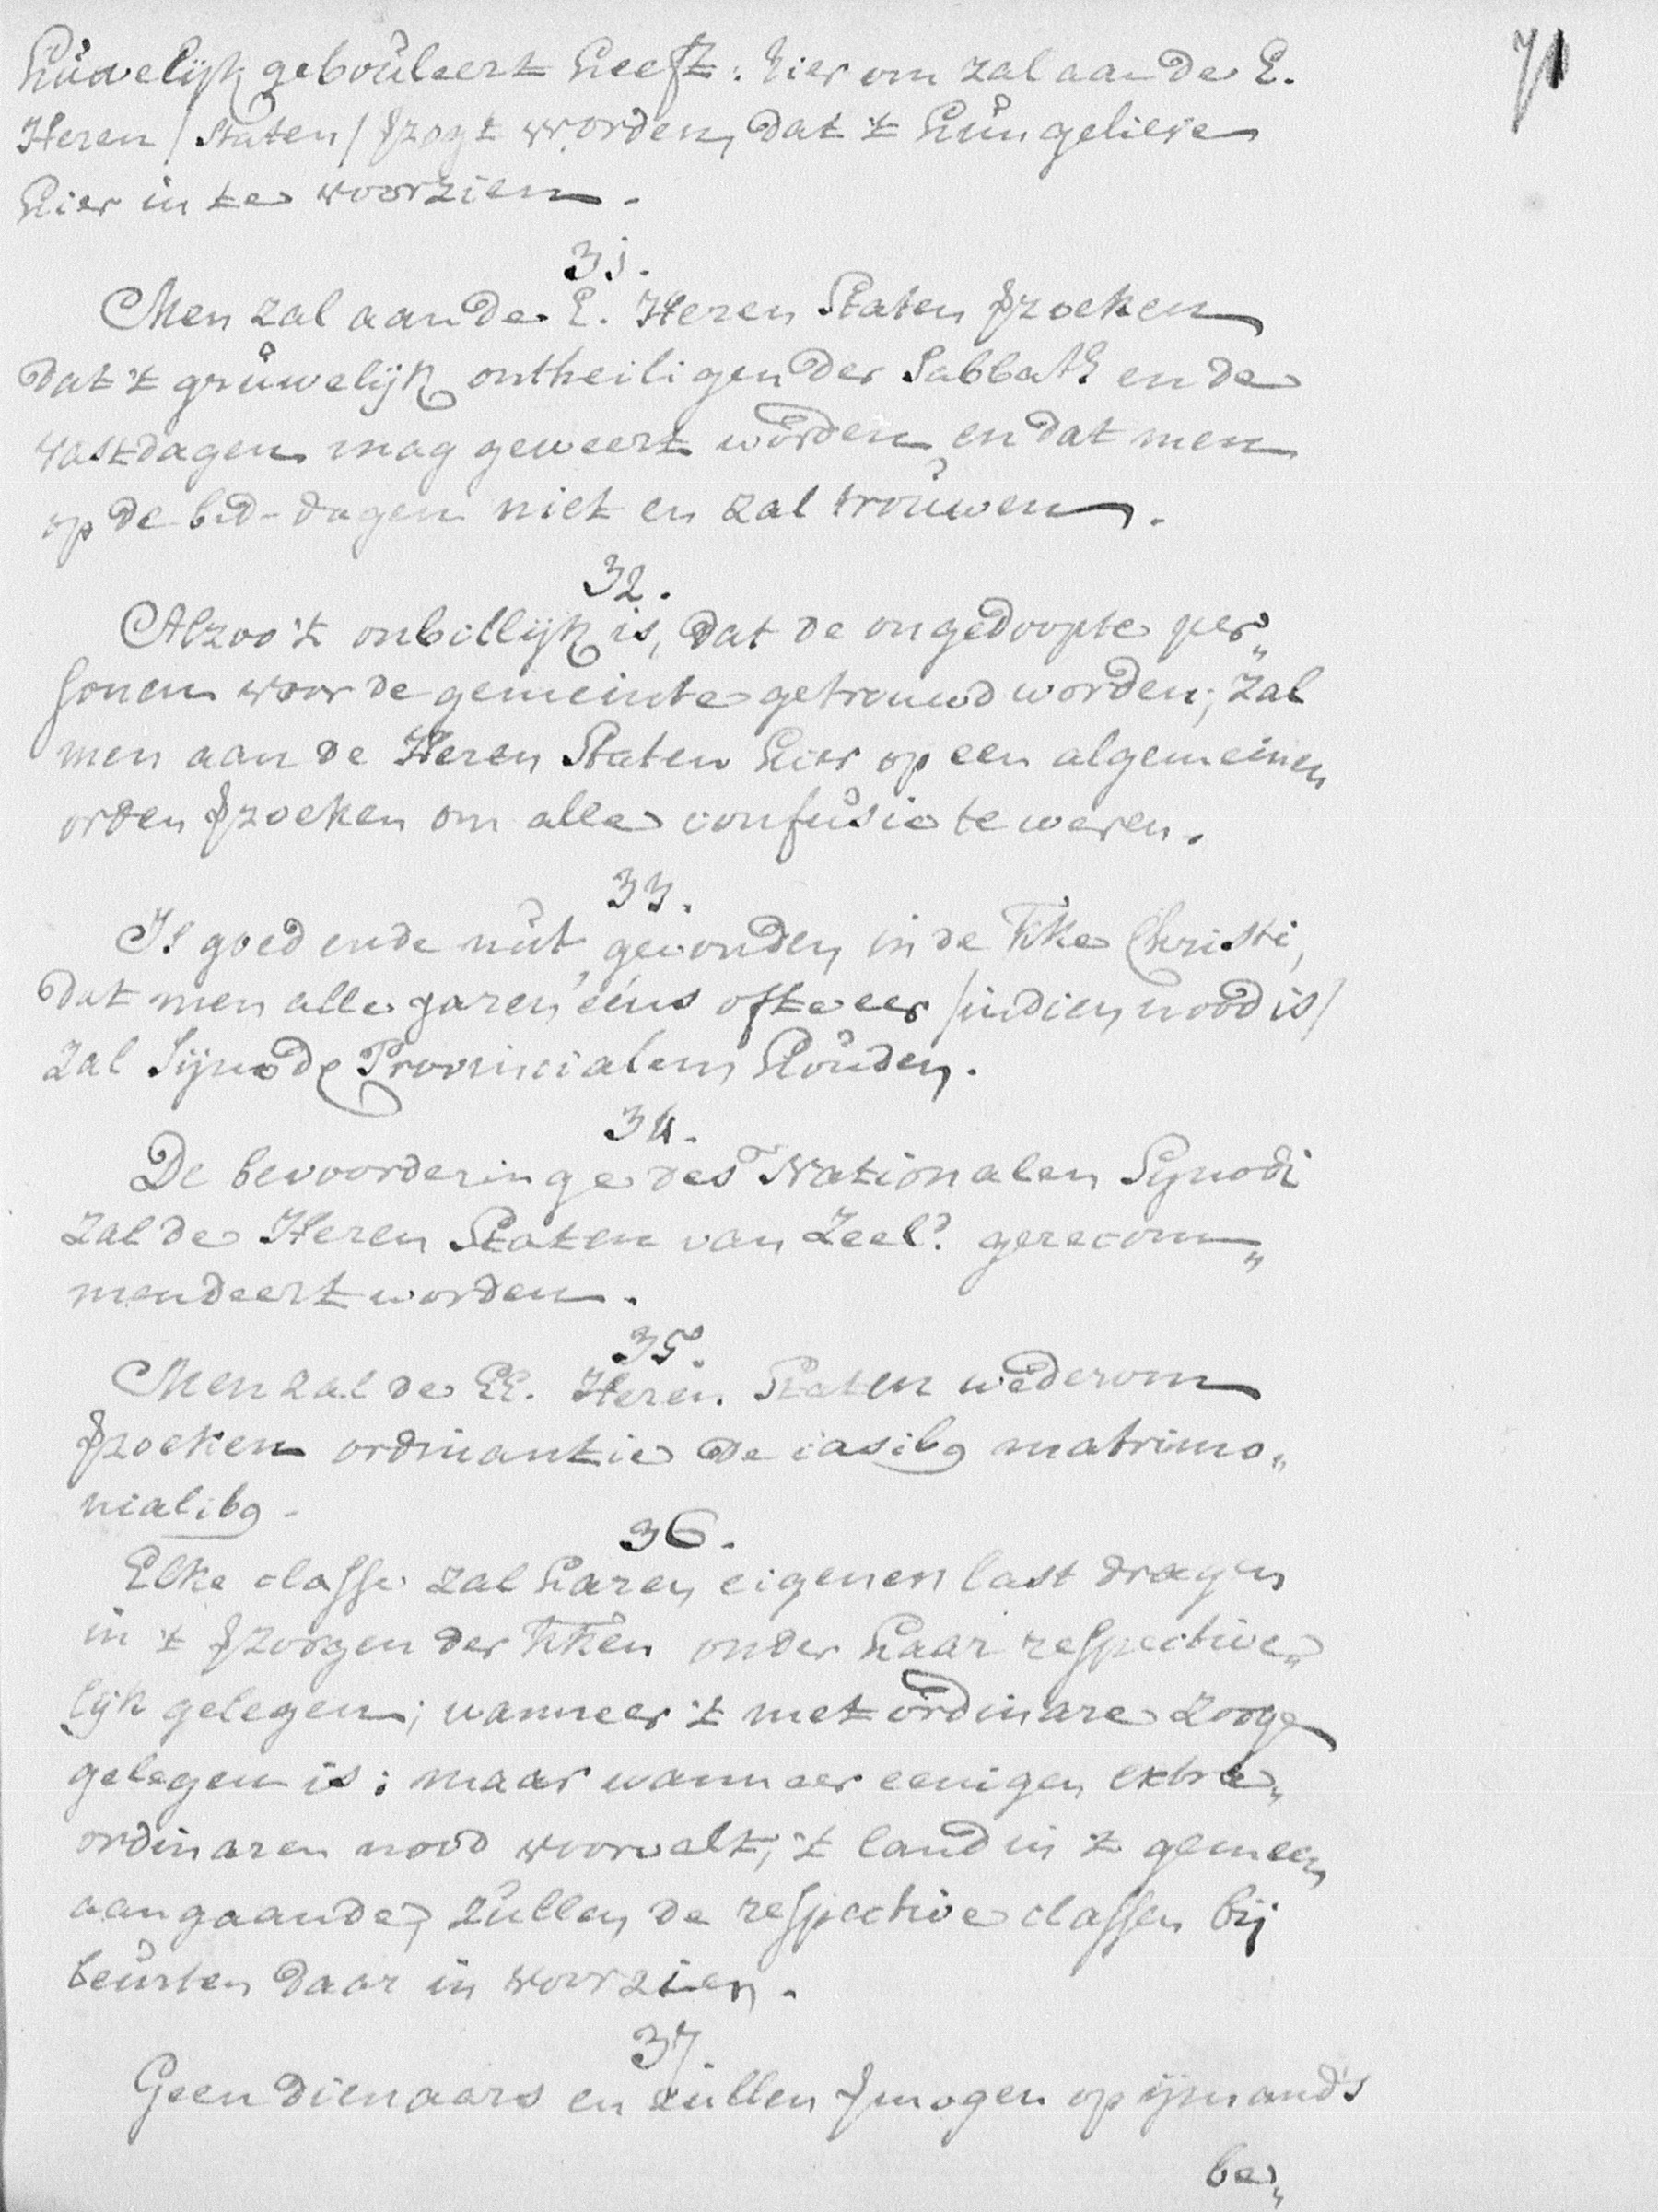 71
huwelijk gebouleert heeft: hier om zal aan de E.
Heren / Staten / ƺzogt worden, dat 't hun gelieve
hier in te voorzien.
31.
Men zal aan de E. Heren Staten ƺzoeken
dat 't gruwelijk ontheiligen der Sabbath en de
vastdagen mag geweert worden, en dat men
op de bid-dagen niet en zal trouwen.
32.
Alzoo 't onbillijk is, dat de ongedoopte per„
sonen voor de gemeinte getrouwd worden; zal
men aan de Heren Staten hier op een algemeinen
orden ƺzoeken om alle confusie te weren.
33.
Is goed ende nut gevonden in de Kke Christi,
dat men alle jaren eens ofte eer / indien nood is /
zal Synode Provincialem houden.
34.
De bevoorderinge des Nationalen Synodi
zal de Heren Staten van Zeel? gerecom„
mendeert worden.
35.
Men zal de EE. Heren Staten wederom
ƺzoeken ordinantie de casibꝰ matrimo„
nialibꝰ.
36.
Elke classe zal haren eigenen last dragen
in 't ƺzorgen der Kken onder haar respective„
lijk gelegen; wanneer 't met ordinare zorge
gelegen is: maar wanneer eenigen extra„
ordinaren nood voorvalt, 't land in 't gemeen
aangaande, zullen de respective classen bij
beurten daar in voorzien.
37.
Geen dienaars en zullen ƺmogen op ijmands
be„